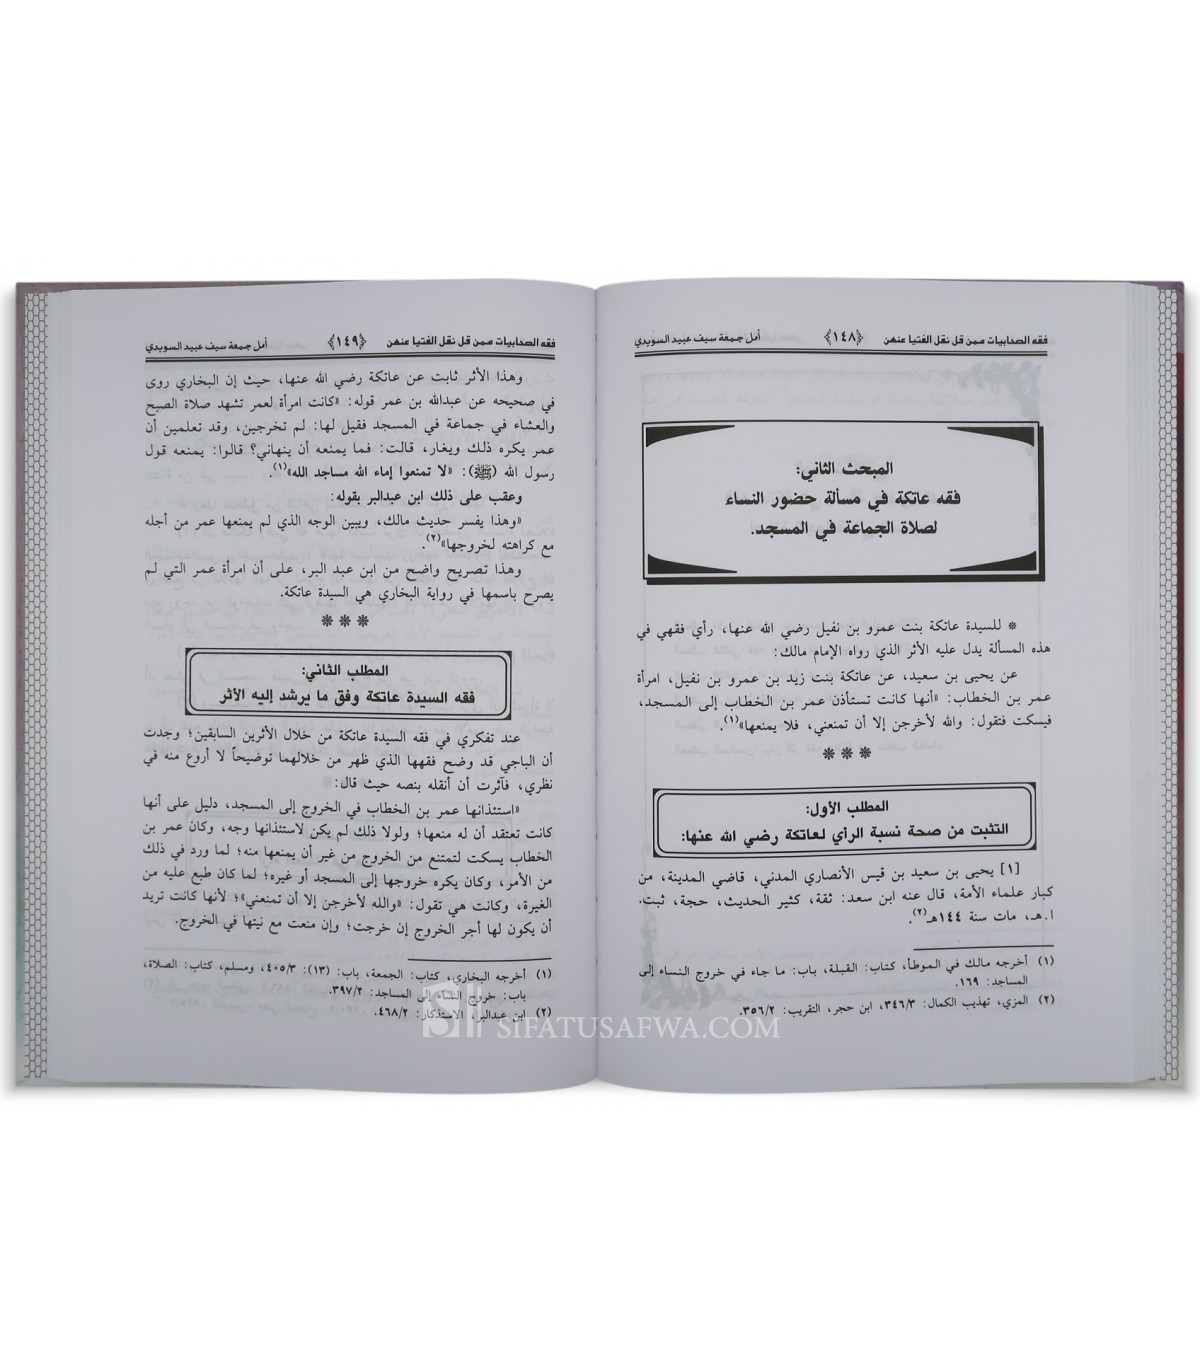 فقه الصحابيات ممن قل نقل الفتيا عنهن ﴿١٤٨﴾ أمل جمعة سيف عبيد السويدي
المبحث الثاني:
فقه عاتكة في مسألة حضور النساء
لصلاة الجماعة في المسجد.
* للسيدة عاتكة بنت عمرو بن نفيل رضي الله عنها، رأي فقهي في
هذه المسألة يدل عليه الأثر الذي رواه الإمام مالك:
عن يحيى بن سعيد، عن عاتكة بنت زيد بن عمرو بن نفيل، امرأة
عمر بن الخطاب: «أنها كانت تستأذن عمر بن الخطاب إلى المسجد،
فيسكت فتقول: والله لأخرجن إلا أن تمنعني، فلا يمنعها»(١).
* * *
المطلب الأول:
التثبت من صحة نسبة الرأي لعاتكة رضي الله عنها:
[١] يحيى بن سعيد بن قيس الأنصاري المدني، قاضي المدينة، من
كبار علماء الأمة، قال عنه ابن سعد: ثقة، كثير الحديث، حجة، ثبت.
ا.هـ، مات سنة ١٤٤هـ(٢).
(١) أخرجه مالك في الموطأ، كتاب: القبلة، باب: ما جاء في خروج النساء إلى
المساجد: ١٦٩.
(٢) المزي، تهذيب الكمال: ٣٤٦/٣، ابن حجر، التقريب: ٣٥٦/٢.
فقه الصحابيات ممن قل نقل الفتيا عنهن ﴿١٤٩﴾ أمل جمعة سيف عبيد السويدي
وهذا الأثر ثابت عن عاتكة رضي الله عنها، حيث إن البخاري روى
في صحيحه عن عبدالله بن عمر قوله: «كانت امرأة لعمر تشهد صلاة الصبح
والعشاء في جماعة في المسجد فقيل لها: لم تخرجين، وقد تعلمين أن
عمر يكره ذلك ويغار، قالت: فما يمنعه أن ينهاني؟ قالوا: يمنعه قول
رسول الله (ﷺ): «لا تمنعوا إماء الله مساجد الله»(١).
وعقب على ذلك ابن عبدالبر بقوله:
«وهذا يفسر حديث مالك، ويبين الوجه الذي لم يمنعها عمر من أجله
مع كراهته لخروجها»(٢).
وهذا تصريح واضح من ابن عبد البر، على أن امرأة عمر التي لم
يصرح باسمها في رواية البخاري هي السيدة عاتكة.
* * *
المطلب الثاني:
فقه السيدة عاتكة وفق ما يرشد إليه الأثر
عند تفكري في فقه السيدة عاتكة من خلال الأثرين السابقين؛ وجدت
أن الباجي قد وضح فقهها الذي ظهر من خلالهما توضيحاً لا أروع منه في
نظري، فآثرت أن أنقله بنصه حيث قال:
«استئذانها عمر بن الخطاب في الخروج إلى المسجد، دليل على أنها
كانت تعتقد أن له منعها؛ ولولا ذلك لم يكن لاستئذانها وجه، وكان عمر بن
الخطاب يسكت لتمتنع من الخروج من غير أن يمنعها منه؛ لما ورد في ذلك
من الأمر، وكان يكره خروجها إلى المسجد أو غيره؛ لما كان طبع عليه من
الغيرة، وكانت هي تقول: «والله لأخرجن إلا أن تمنعني»؛ لأنها كانت تريد
أن يكون لها أجر الخروج إن خرجت؛ وإن منعت مع نيتها في الخروج.
(١) أخرجه البخاري، كتاب: الجمعة، باب: (١٣): ٤٠٥/٣، ومسلم، كتاب: الصلاة،
باب: خروج النساء إلى المساجد: ٣٩٧/٢.
(٢) ابن عبدالبر، الاستذكار: ٤٦٨/٢.
SIFATUSAFWA.COM